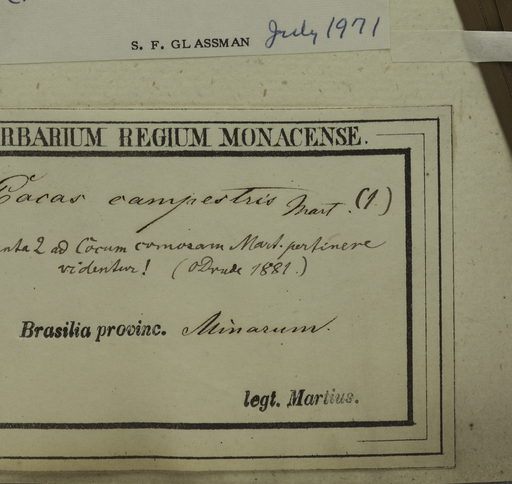 S. F. GLASSMAN July 1971
RBARIUM REGIUM MONACENSE.
Cocos campestris Mart. (1.)
2 ad Cocum comosam Mart. pertinere
videntur! (Drude 1881.)
Brasilia provinc. Minarum.
legt. Martius.